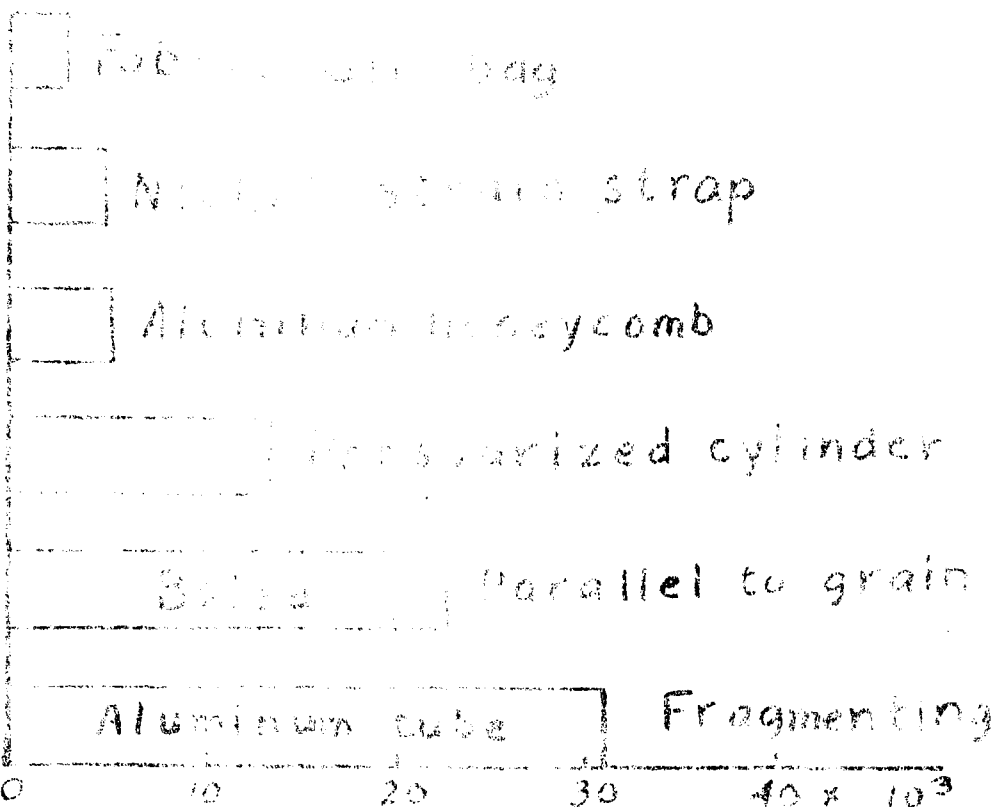 Fabric air bag
strain strap
Aluminum honeycomb
Pressurized cylinder
Balsa Parallel to grain
Aluminum tube Fragmenting
0 10 20 30 40 x 10³